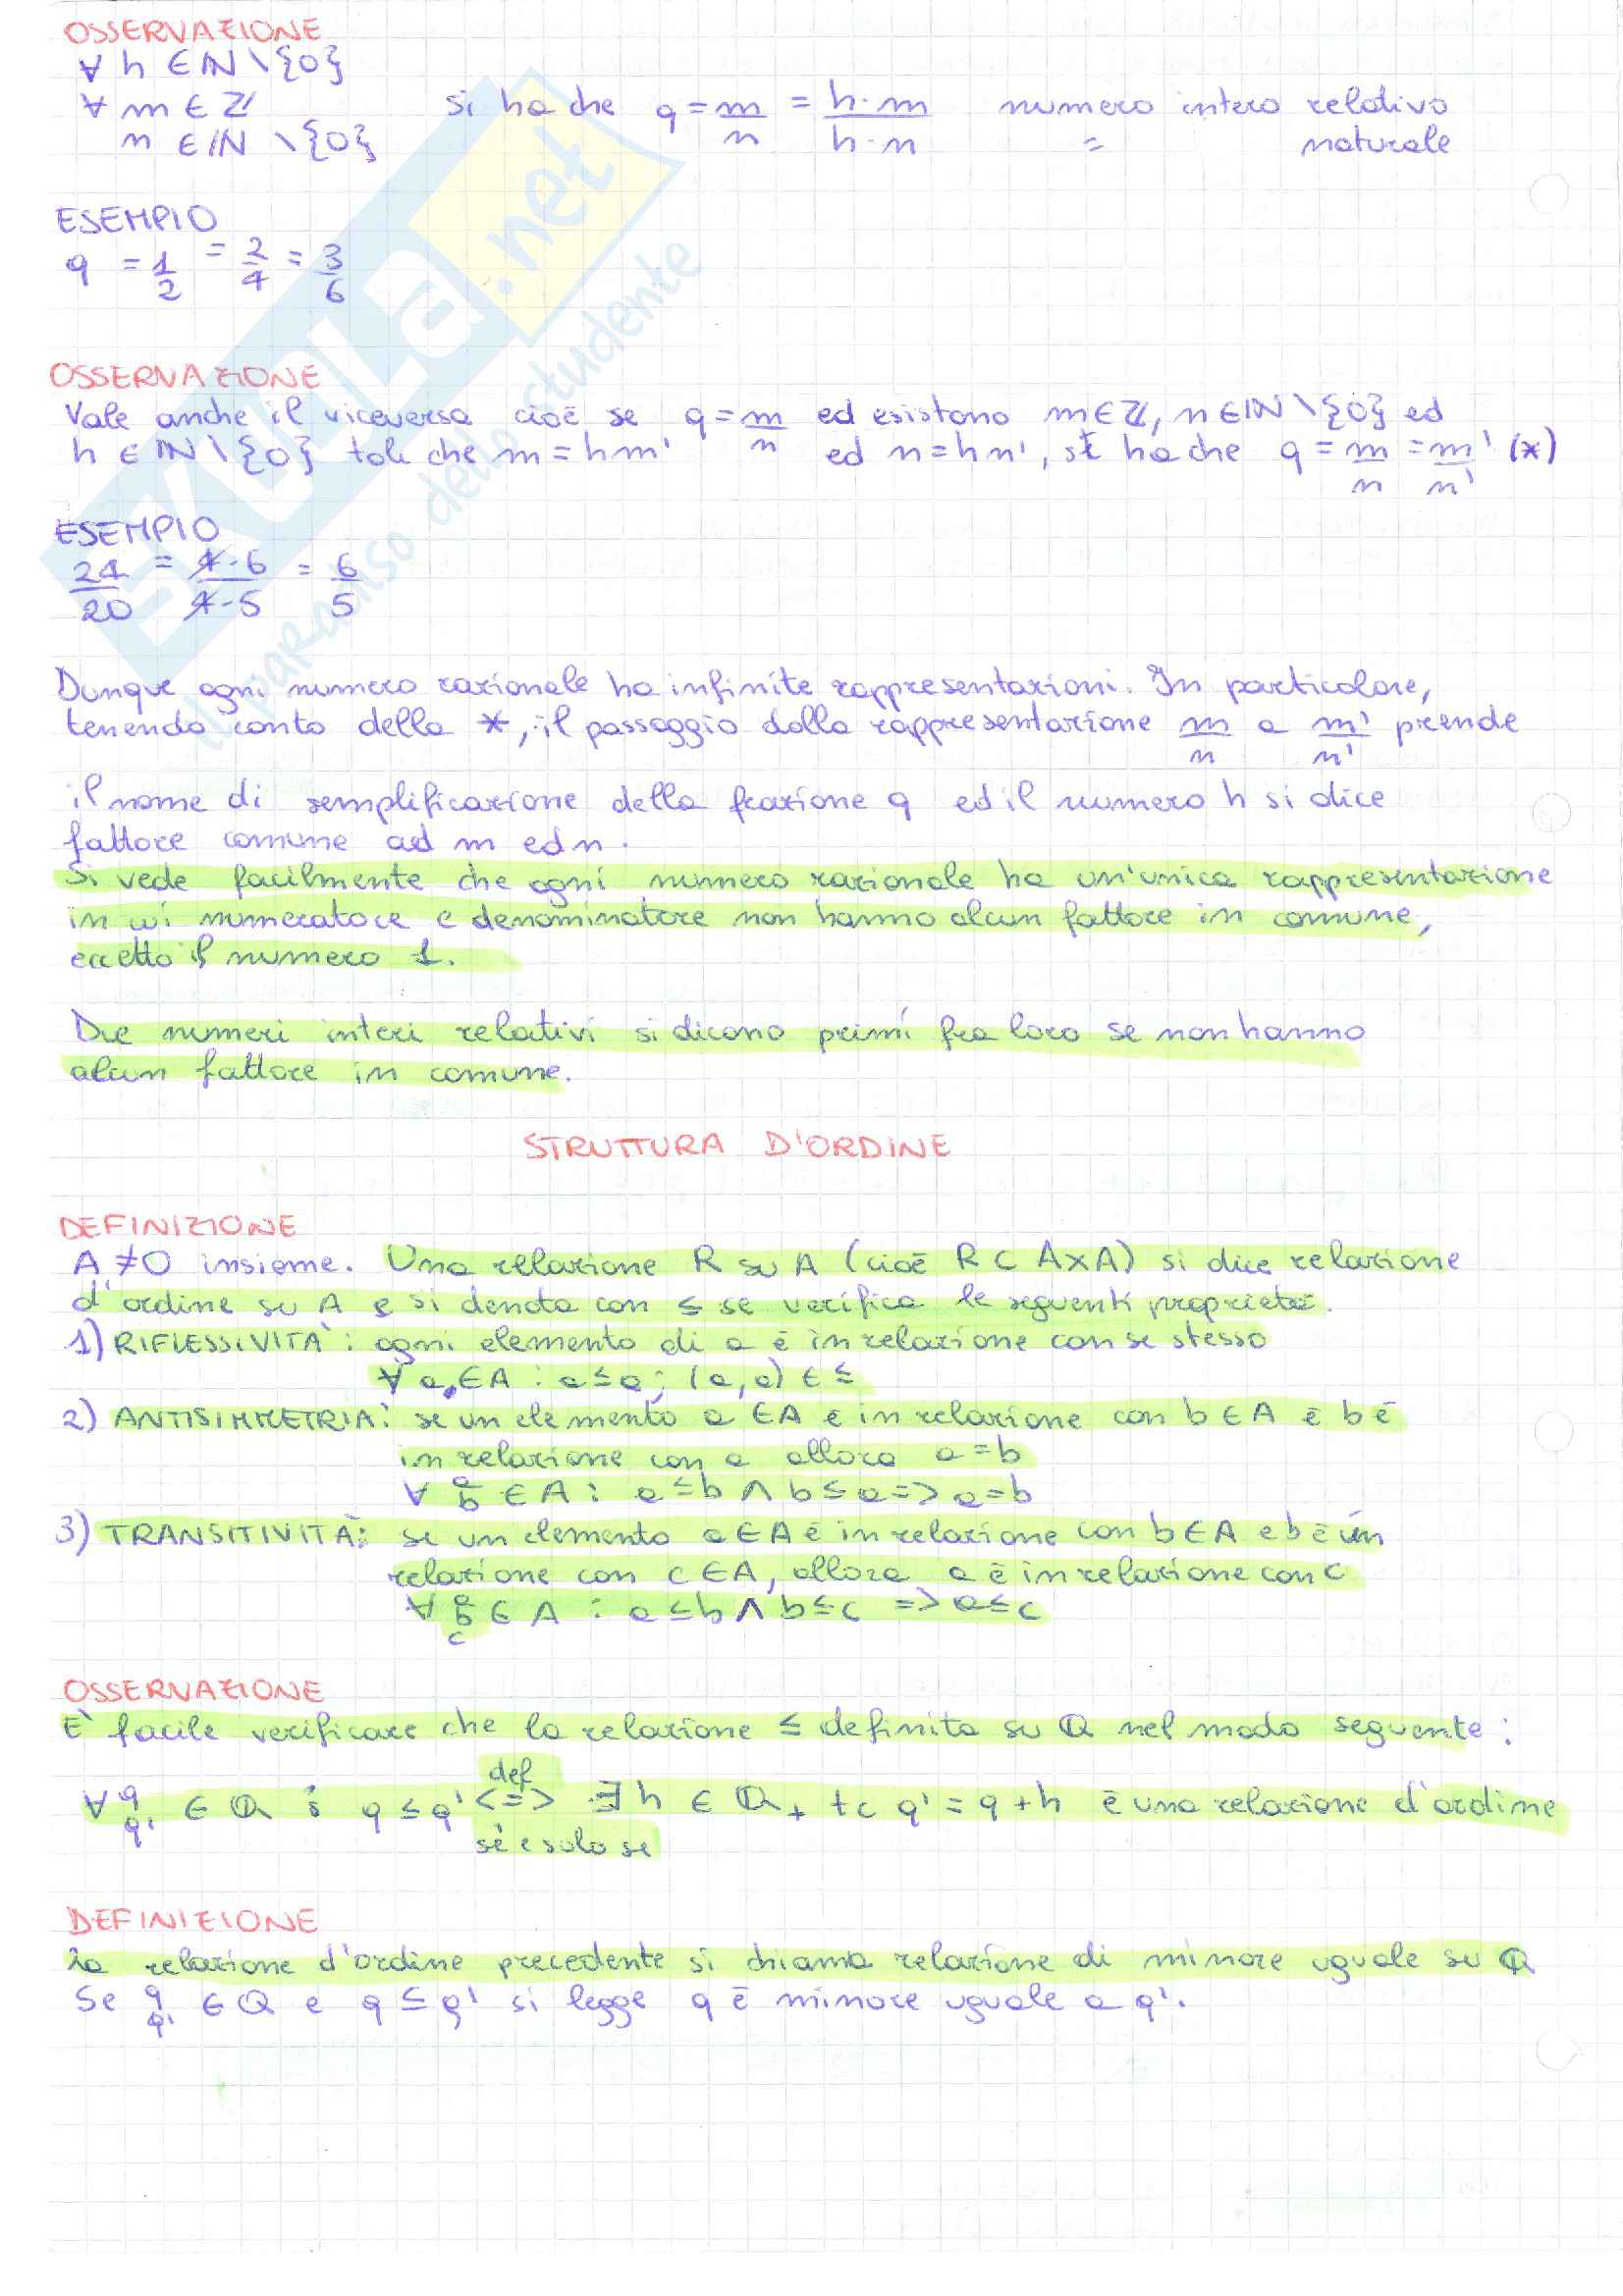 OSSERVAZIONE
∀ h ∈ ℕ \ {0}
∀ m ∈ ℤ si ha che q = m/n = h·m/h·n numero intero relativo
n ∈ ℕ \ {0} = naturale
ESEMPIO
q = 1/2 = 2/4 = 3/6
OSSERVAZIONE
Vale anche il viceversa cioè se q = m/n ed esistono m ∈ ℤ, n ∈ ℕ \ {0} ed
h ∈ ℕ \ {0} tali che m = hm' ed n = hn', si ha che q = m/n = m'/n' (*)
ESEMPIO
24/20 = 4·6/4·5 = 6/5
Dunque ogni numero razionale ha infinite rappresentazioni. In particolare,
tenendo conto della *, il passaggio dalla rappresentazione m/n a m'/n' prende
il nome di semplificazione della frazione q ed il numero h si dice
fattore comune ad m ed n.
Si vede facilmente che ogni numero razionale ha un'unica rappresentazione
in cui numeratore e denominatore non hanno alcun fattore in comune,
eccetto il numero 1.
Due numeri interi relativi si dicono primi fra loro se non hanno
alcun fattore in comune.
STRUTTURA D'ORDINE
DEFINIZIONE
A ≠ O insieme. Una relazione R su A (cioè R ⊂ A×A) si dice relazione
d'ordine su A e si denota con ≤ se verifica le seguenti proprietà.
1) RIFLESSIVITÀ: ogni elemento di a è in relazione con se stesso
∀ a ∈ A : a ≤ a; (a,a) ∈ ≤
2) ANTISIMMETRIA: se un elemento a ∈ A è in relazione con b ∈ A e b è
in relazione con a allora a = b
∀ a b ∈ A : a ≤ b ∧ b ≤ a => a = b
3) TRANSITIVITÀ: se un elemento a ∈ A è in relazione con b ∈ A e b è in
relazione con c ∈ A, allora a è in relazione con c
∀ a b c ∈ A : a ≤ b ∧ b ≤ c => a ≤ c
OSSERVAZIONE
E' facile verificare che la relazione ≤ definita su ℚ nel modo seguente:
def
∀ q q' ∈ ℚ : q ≤ q' <=> ∃ h ∈ ℚ+ tc q' = q + h è una relazione d'ordine
se e solo se
DEFINIZIONE
La relazione d'ordine precedente si chiama relazione di minore uguale su ℚ
Se q q' ∈ ℚ e q ≤ q' si legge q è minore uguale a q'.
EXULA.net
il paradiso dello studente